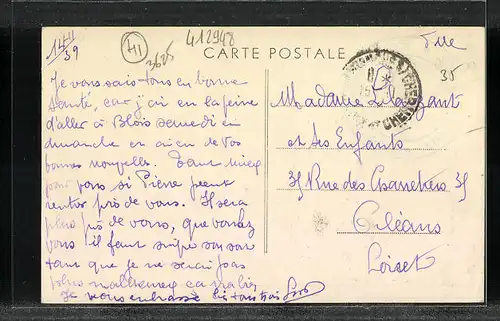 14/11
39
41
3625
412948
CARTE POSTALE
Je vous sais tous en bonne
santé, car j'ai eu la peine
d'aller à Blois samedi
dimanche eu de vos
bonnes nouvelles. Tant mieux
pour vous si Pierre peut
rentrer près de vous. Il sera
plus près de vous, que voulez
vous il faut
tant que je ne serai pas
plus malheureux
Je vous embrasse
Ville
35
CHER
Madame
et ses Enfants
35 Rue des Charretiers 35
Orléans
Loiret